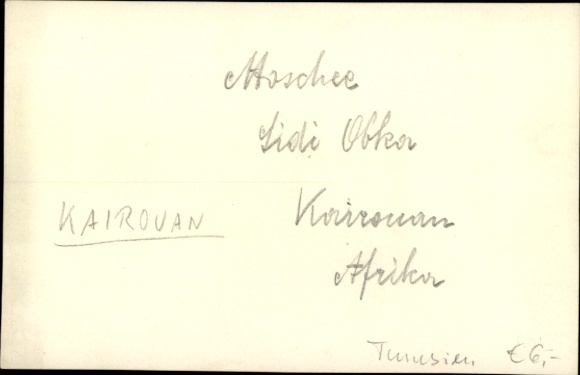 Moschee
Sidi Obka
KAIROUAN
Kairouan
Afrika
Tunesien €6,-